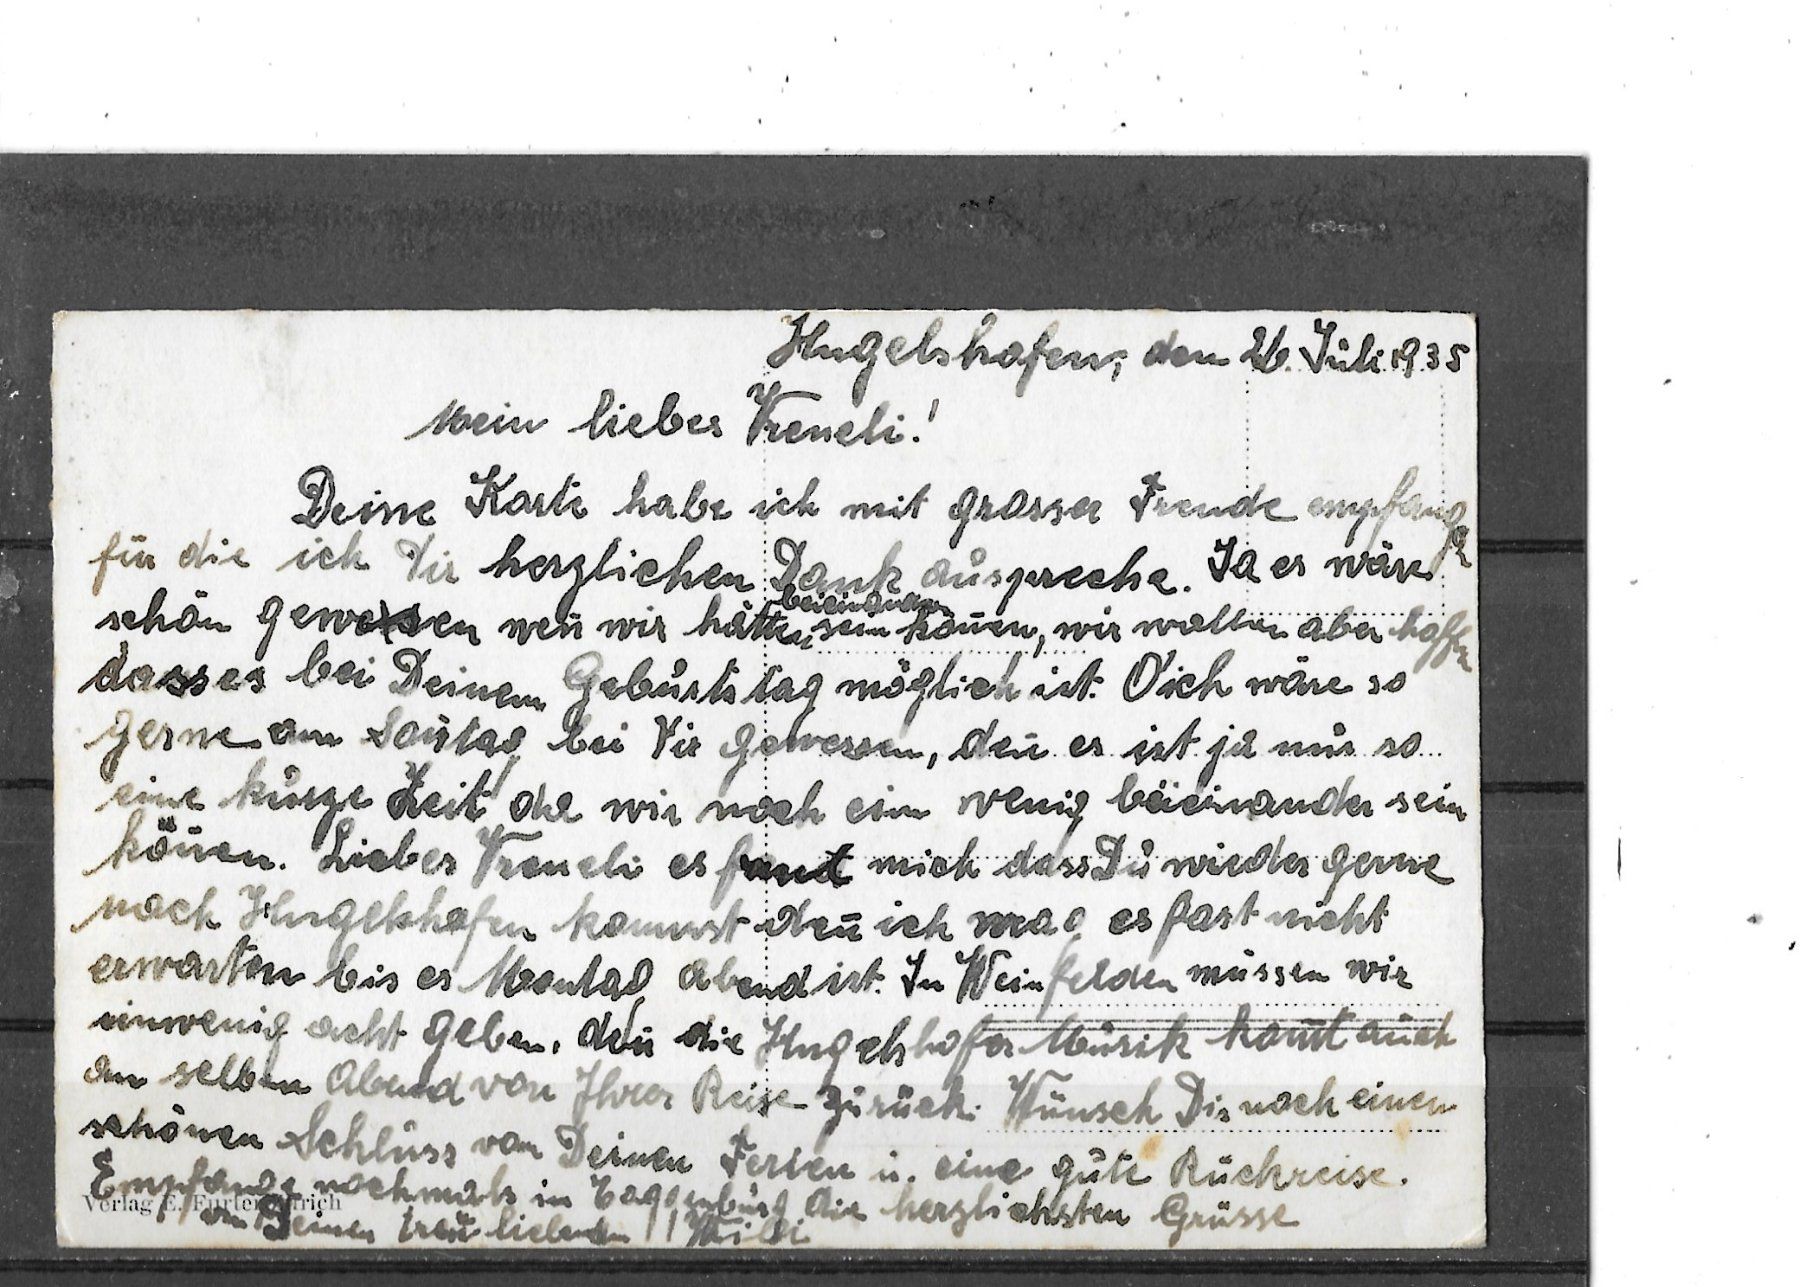 Hugelshofen, den 26. Juli 1935
Mein liebes Vreneli!
Deine Karte habe ich mit grosser Freude empfangen
für die ich Dir herzlichen Dank ausspreche. Ja es wäre
schön gewesen weñ wir hätten beieinander sein köñen, wir wollen aber hoffen
dass es bei Deinem Geburtstag möglich ist. O ich wäre so
gerne am Soñtag bei Dir gewessen, deñ es ist ja nur so
eine kurze Zeit da wir noch ein wenig beieinander sein
köñen. Liebes Vreneli es freut mich dass Du wieder gerne
nach Hugelshofen kommst deñ ich mag es fast nicht
erwarten bis es Montag Abend ist. In Weinfelden müssen wir
einwenig acht geben, deñ die Hugelshofer Musik komt auch
am selben Abend von Ihrer Reise zurück. Wünsch Dir noch einen
schönen Schluss von Deinen Ferien u. eine gute Rückreise.
Empfange nochmals in Toggenburg die herzlichsten Grüsse
von Deinem treu liebenden Willi
Verlag E. Furter Zürich